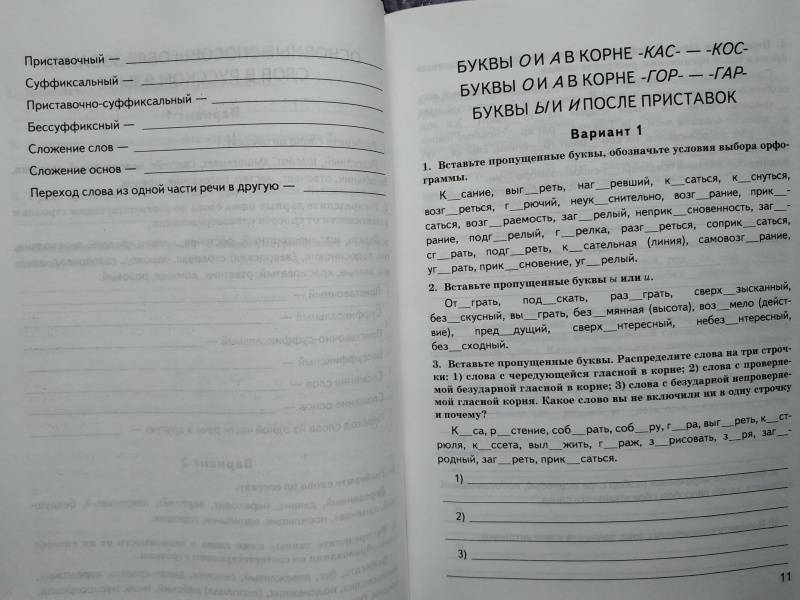 Приставочный —
Суффиксальный —
Приставочно-суффиксальный —
Бессуффиксный —
Сложение слов —
Сложение основ —
Переход слова из одной части речи в другую —
БУКВЫ О И А В КОРНЕ -КАС- — -КОС-
БУКВЫ О И А В КОРНЕ -ГОР- — -ГАР-
БУКВЫ Ы И И ПОСЛЕ ПРИСТАВОК
Вариант 1
1. Вставьте пропущенные буквы, обозначьте условия выбора орфо-
граммы.
К__сание, выг__реть, наг__ревший, к__саться, к__снуться,
возг__реться, г__рючий, неук__снительно, возг__рание, прик__-
саться, возг__раемость, заг__релый, неприк__сновенность, заг__-
рание, подг__релый, г__релка, разг__реться, соприк__саться,
сг__рать, подг__реть, к__сательная (линия), самовозг__рание,
уг__рать, прик__сновение, уг__релый.
2. Вставьте пропущенные буквы ы или и.
От__грать, под__скать, раз__грать, сверх__зысканный,
без__скусный, вы__грать, без__мянная (высота), воз__мело (дейст-
вие), пред__дущий, сверх__нтересный, небез__нтересный,
без__сходный.
3. Вставьте пропущенные буквы. Распределите слова на три строч-
ки: 1) слова с чередующейся гласной в корне; 2) слова с проверяе-
мой безударной гласной в корне; 3) слова с безударной непроверяе-
мой гласной корня. Какое слово вы не включили ни в одну строчку
и почему?
К__са, р__стение, соб__рать, соб__ру, г__ра, выг__реть, к__ст-
рюля, к__ссета, выл__жить, г__раж, з__рисовать, з__ря, заг__-
родный, заг__реть, прик__саться.
1)
2)
3)
11